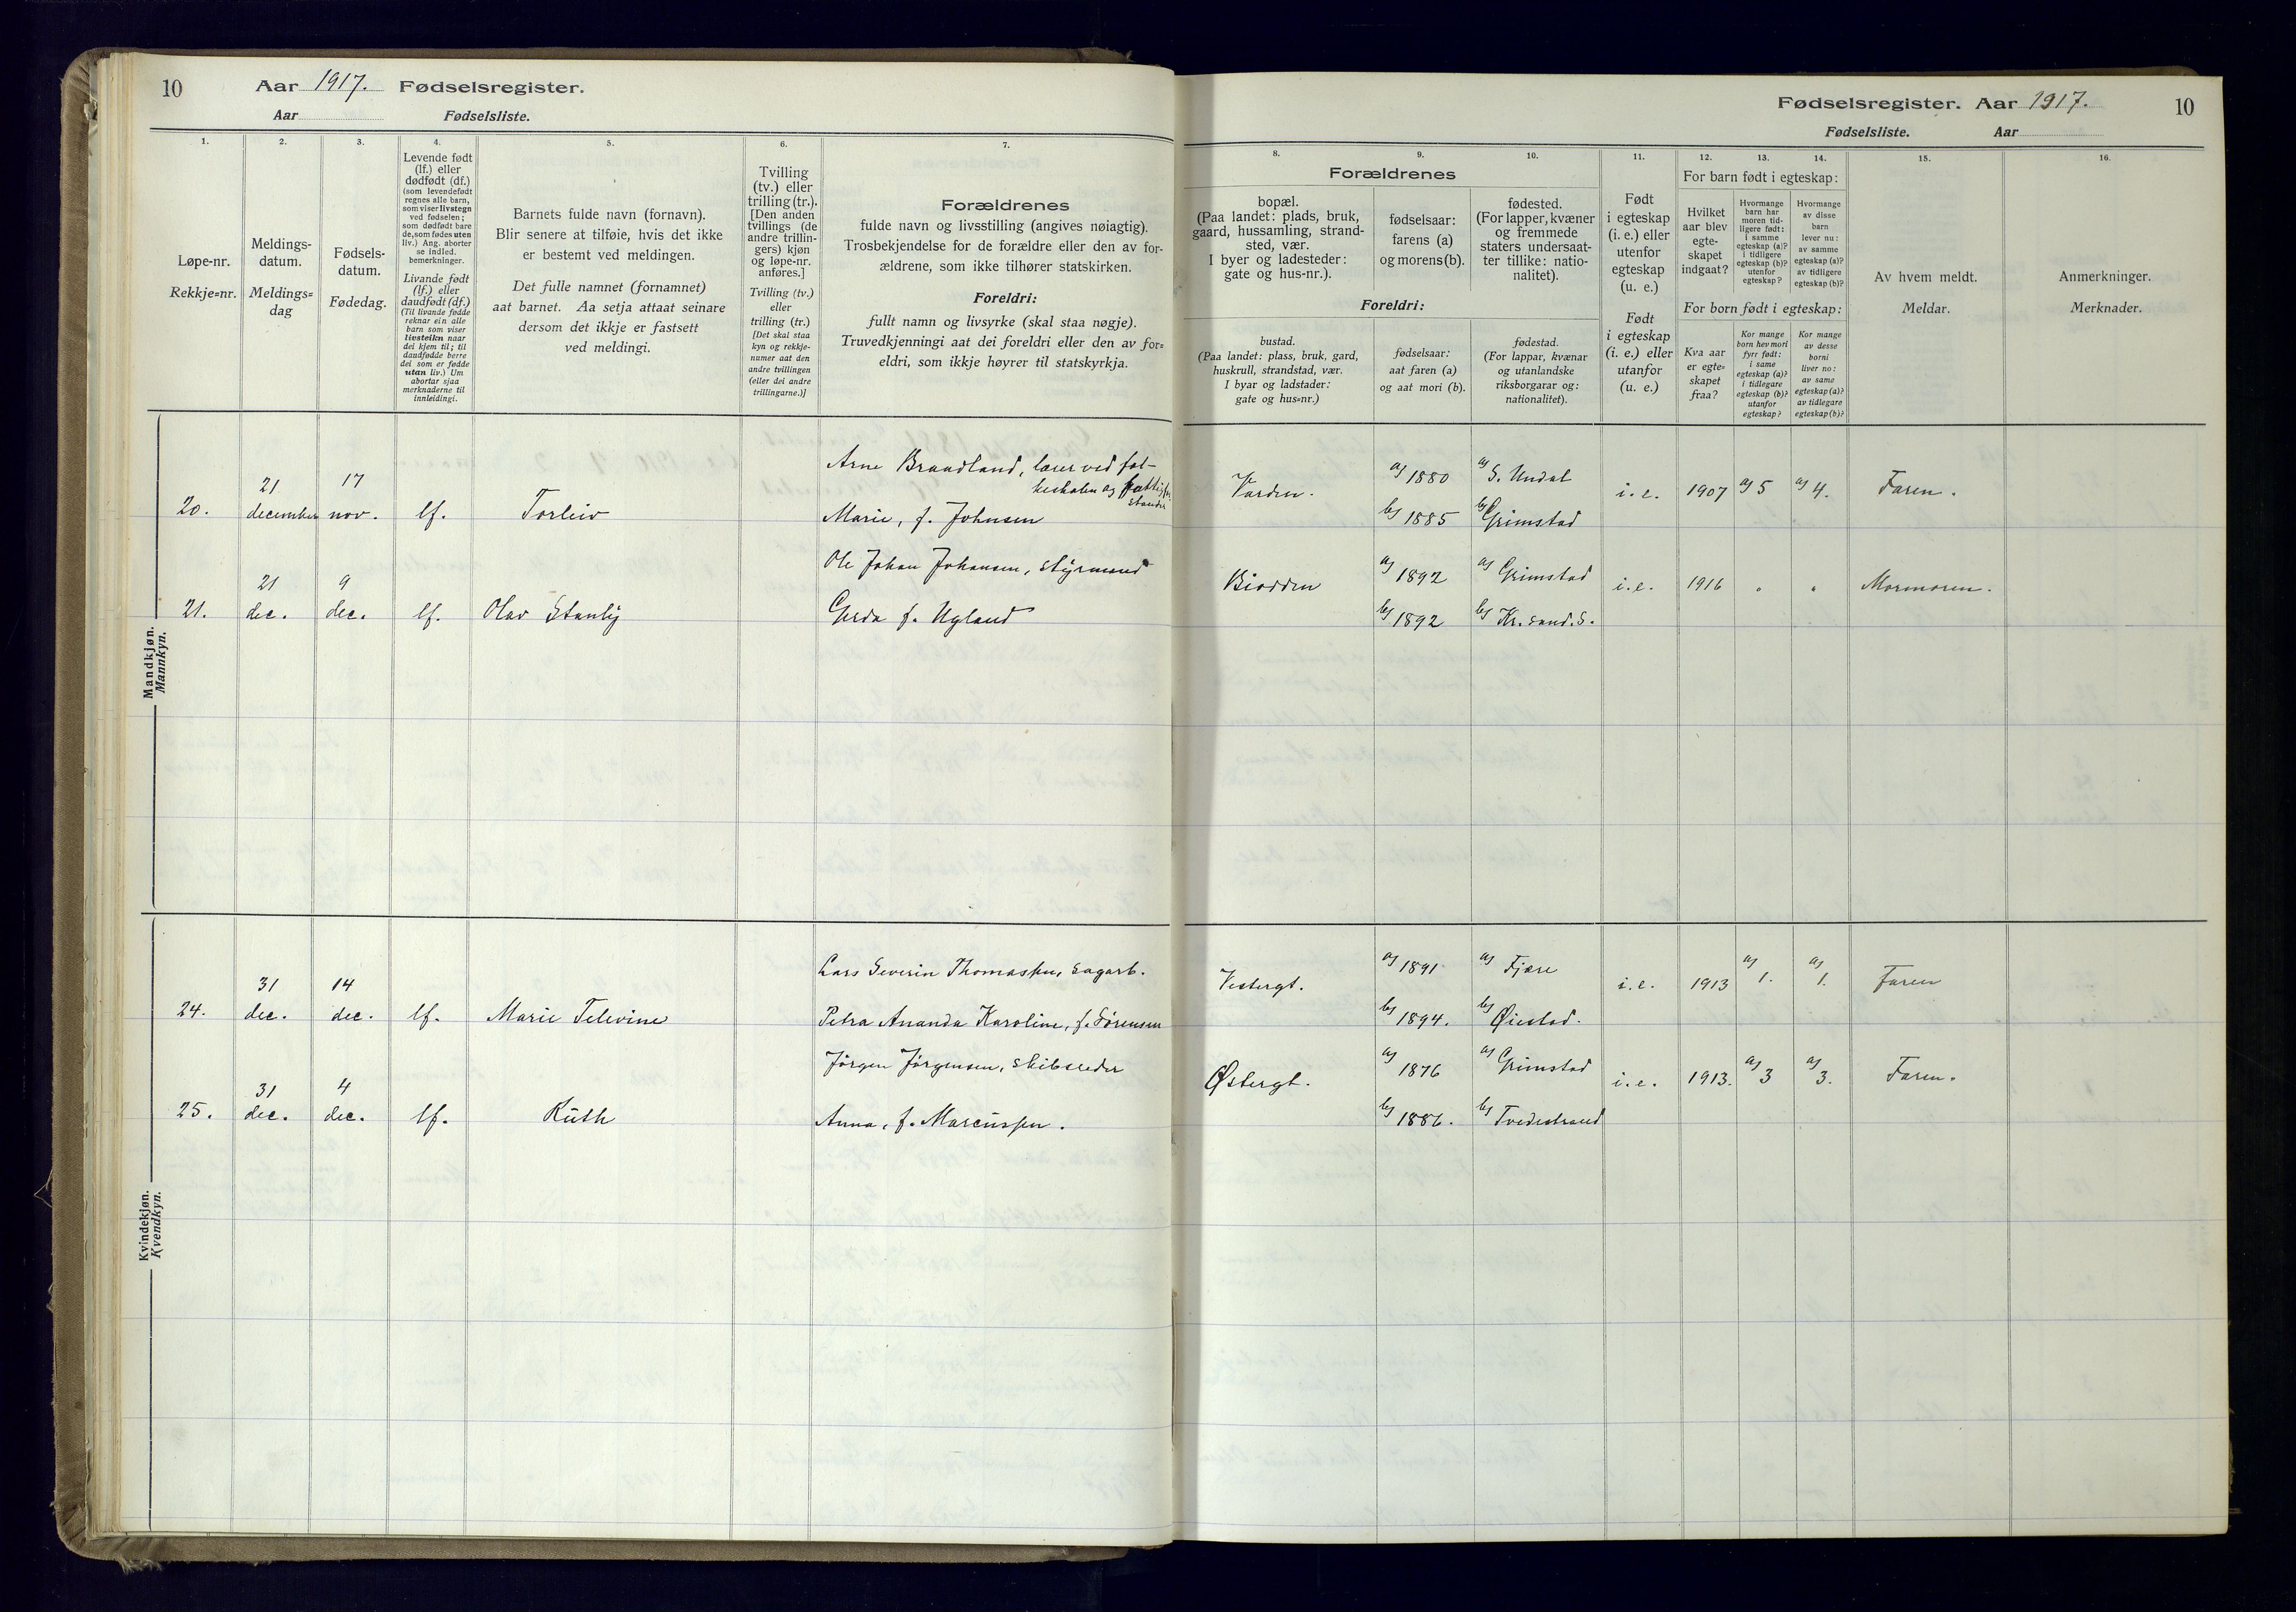 10
Aar 1917. Fødselsregister.
Aar Fødselsliste.
Fødselsregister. Aar 1917.
10
Fødselsliste. Aar
1.
Løpe-nr.
Rekkje=nr.
2.
Meldings-
datum.
Meldings=
dag
3.
Fødsels-
datum.
Fødedag.
4.
Levende født
(lf.) eller
dødfødt (df.)
(som levendefødt
regnes alle barn,
som viser livstegn
ved fødselen;
som dødfødt bare
de, som fødes uten
liv.) Ang. aborter
se indled.
bemerkninger.
Livande født
(lf.) eller
daudfødt (df.)
(Til livande fødde
reknar ein alle
barn som viser
livsteikn naar
dei kjem til; til
daudfødde berre
dei som er fødde
utan liv.) Um
abortar sjaa
merknaderne til
innleidingi.
5.
Barnets fulde navn (fornavn).
Blir senere at tilføie, hvis det ikke
er bestemt ved meldingen.
Det fulle namnet (fornamnet)
aat barnet. Aa setja attaat seinare
dersom det ikkje er fastsett
ved meldingi.
6.
Tvilling
(tv.) eller
trilling (tr.).
[Den anden
tvillings (de
andre trillin-
gers) kjøn
og løpe-nr.
anføres.]
Tvilling (tv.)
eller
trilling (tr.)
[Det skal staa
kyn og rekkje-
numer aat den
andre tvillingen
(eller dei andre
trillingarne.)]
7.
Forældrenes
fulde navn og livsstilling (angives nøiagtig).
Trosbekjendelse for de forældre eller den av for-
ældrene, som ikke tilhører statskirken.
Foreldri:
fullt namn og livsyrke (skal staa nøgje).
Truvedkjenningi aat dei foreldri eller den av for=
eldri, som ikkje høyrer til statskyrkja.
Forældrenes
8.
bopæl.
(Paa landet: plads, bruk,
gaard, hussamling, strand-
sted, vær.
I byer og ladesteder:
gate og hus-nr.).
9.
fødselsaar:
farens (a)
og morens (b).
10.
fødested.
(For lapper, kvæner
og fremmede
staters undersaat-
ter tillike: natio-
nalitet).
Foreldri:
bustad.
(Paa landet: plass, bruk, gard,
huskrull, strandstad, vær.
I byar og ladstader:
gate og hus=nr.)
fødselsaar:
aat faren (a)
og aat mori (b).
fødestad.
(For lappar, kvænar
og utanlandske
riksborgarar og:
nationalitet).
11.
Født
i egteskap
(i. e.) eller
utenfor
egteskap
(u. e.)
Født
i egteskap
(i. e.) eller
utanfor
(u. e.)
12. 13. 14.
For barn født i egteskap:
Hvilket
aar blev
egte-
skapet
indgaat?
Hvormange
barn har
moren tid-
ligere født:
i samme
egteskap (a)?
i tidligere
egteskap (b)?
utenfor
egteskap?
Hvormange
av disse
barn
lever nu:
av samme
egteskap (a)?
av tidligere
egteskap (b)?
For born født i egteskap:
Kva aar
er egte=
skapet
fraa?
Kor mange
born hev mori
fyrr født:
i same
egteskap (a)?
i tidlegare
egteskap (b)?
utanfor
egteskap?
Kor mange
av desse
borni
liver no:
av same
egteskap (a)?
av tidlegare
egteskap (b)?
15.
Av hvem meldt.
Meldar.
16.
Anmerkninger.
Merknader.
Mandkjøn.
Mannkyn.
Arne Brandland, lærer ved fol-
keskolen og fattigfor-
stander
20. 21 december 17 nov. lf. Torleiv
Marie, f. Johnsen
Varden. a) 1880 a) S. Undal i. e. 1907 a) 5 a) 4. Faren.
b) 1885 b) Grimstad
Ole Johan Johansen, styrmand
21. 21 dec. 9 dec. lf. Olav Stanly
Gerda f. Ugland
Biodden a) 1892 a) Grimstad i. e. 1916 " " Mormoren.
b) 1892 b) Kr. sand. S.
Kvindekjøn.
Kvendkyn.
Lars Severin Thomassen, sagarb.
24. 31 dec. 14 dec. lf. Marie Televine
Petra Ananda Karoline, f. Sørensen
Vestergt. a) 1891 a) Fjære i. e. 1913 a) 1. a) 1. Faren
b) 1894. b) Øiestad.
Jörgen Jörgensen, skibsreder
25. 31 dec. 4 dec. lf. Ruth
Anna, f. Marcussen.
Østergt. a) 1876 a) Grimstad i. e. 1913. a) 3 a) 3. Faren.
b) 1886. b) Tvedestrand